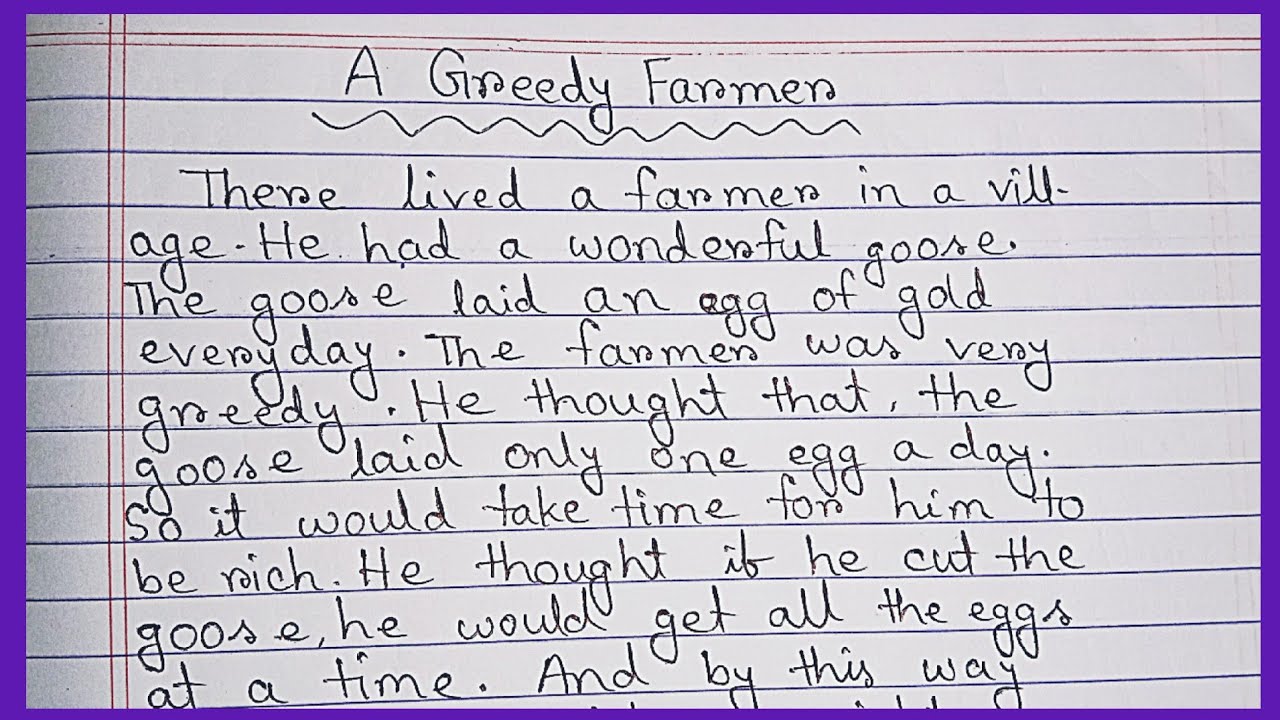 A Greedy Farmer
There lived a farmer in a vill-
age. He had a wonderful goose.
The goose laid an egg of gold
everyday. The farmer was very
greedy. He thought that, the
goose laid only one egg a day.
So it would take time for him to
be rich. He thought if he cut the
goose, he would get all the eggs
at a time. And by this way